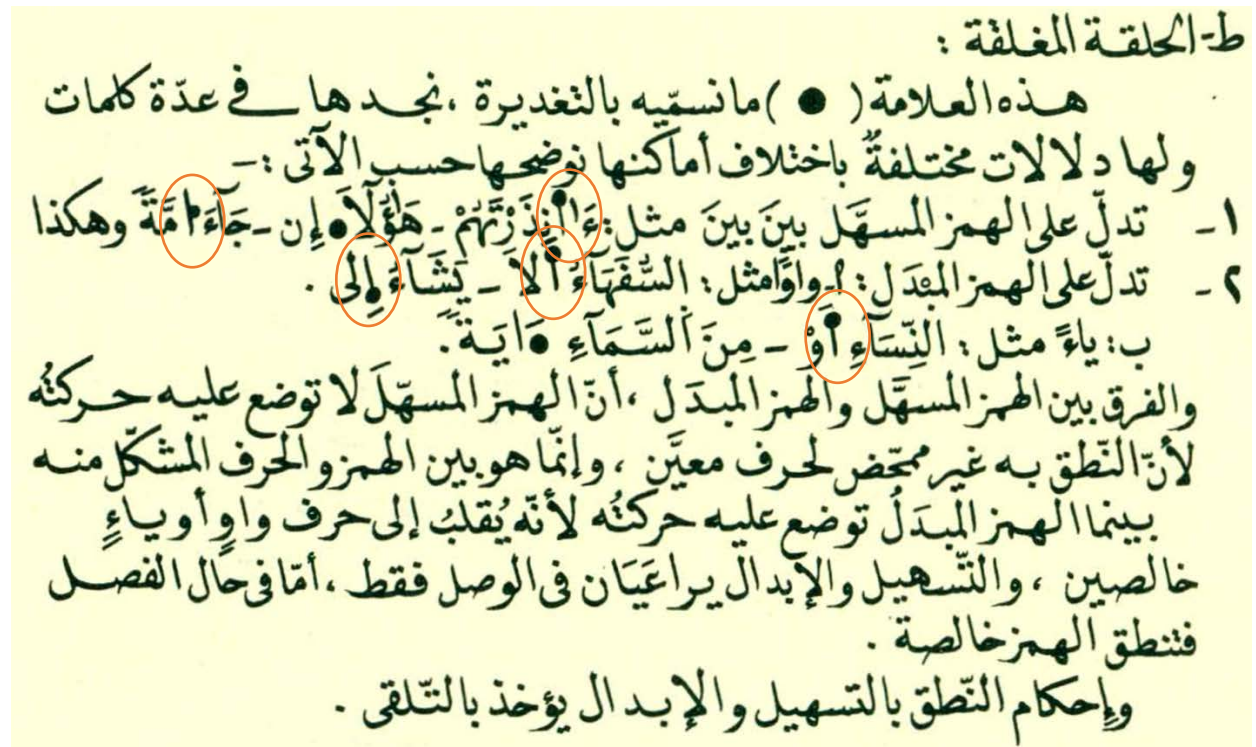 ط-الحلقة المغلقة :
هذه العلامة ( ● ) ما نسمّيه بالتغديرة ، نجدها في عدّة كلمات
ولها دلالات مختلفةٌ باختلاف أماكنها نوضحها حسب الآتى :-
١- تدلّ على الهمز المسهَّل بينَ بينَ مثل : ءَا۬نذَرْتَهُمْ - هَٰٓؤُلَآ ●إِن - جَآءَ ا۬مَّةً وهكذا
٢- تدلّ على الهمز المبْدَل : ا-واوًا مثل : اِ۬لسُّفَهَآءُ اَ۬لَا - يَشَآءُ اِ۪لَىٰ .
ب : ياءً مثل : اِ۬لنِّسَآءِ اَ۬وْ - مِنَ اَ۬لسَّمَآءِ ●َايَةً .
والفرق بين الهمز المسهَّل والهمز المبدَل ، أنّ الهمز المسهّلَ لا توضع عليه حركتُه
لأنّ النّطق به غير ممحّض لحرف معيَّن ، وإنّما هو بين الهمز والحرف المشكّل منه
بينما الهمز المبدَلُ توضع عليه حركتُه لأنّه يُقلبُ إلى حرف واوٍ أو ياءٍ
خالصين ، والتّسهيل والإبدال يراعَيَان فى الوصل فقط ، أمّا فى حال الفصل
فتنطق الهمز خالصة .
وإحكام النّطق بالتسهيل والإبدال يؤخذ بالتّلقى .